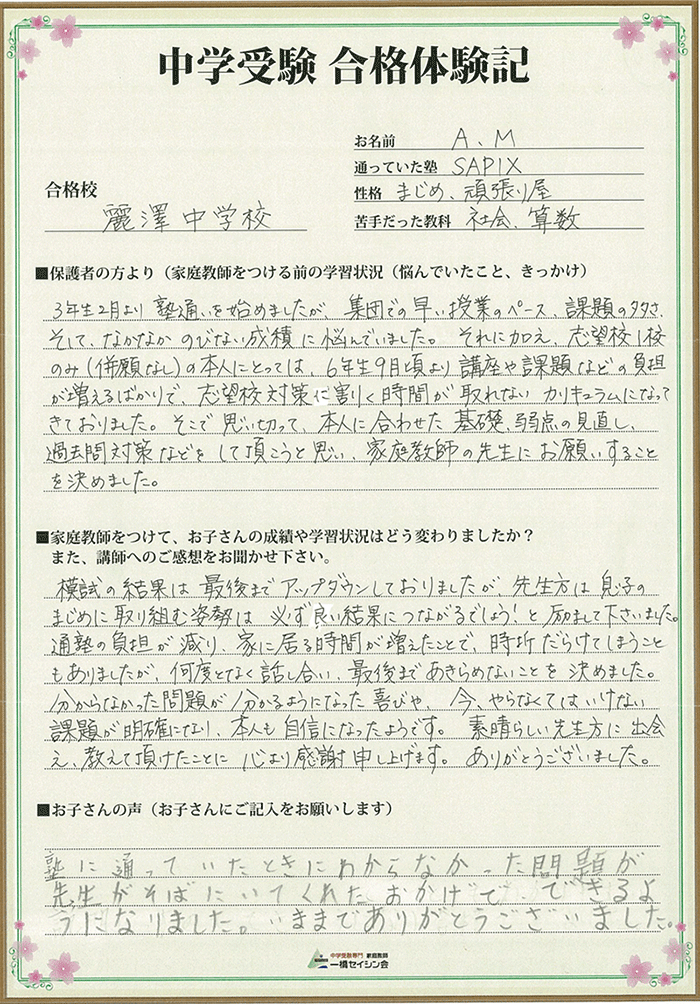 中学受験 合格体験記
お名前 A.M
通っていた塾 SAPIX
合格校 麗澤中学校
性格 まじめ、頑張り屋
苦手だった教科 社会、算数
■保護者の方より（家庭教師をつける前の学習状況（悩んでいたこと、きっかけ）
3年生2月より塾通いを始めましたが、集団での早い授業のペース、課題の多さ、
そして、なかなかのびない成績に悩んでいました。それに加え、志望校1校
のみ（併願なし）の本人にとっては、6年生9月頃より講座や課題などの負担
が増えるばかりで、志望校対策に割く時間が取れないカリキュラムになって
きておりました。そこで思い切って、本人に合わせた基礎、弱点の見直し、
過去問対策などをして頂こうと思い、家庭教師の先生にお願いすること
を決めました。
■家庭教師をつけて、お子さんの成績や学習状況はどう変わりましたか？
また、講師へのご感想をお聞かせ下さい。
模試の結果は最後までアップダウンしておりましたが、先生方は息子の
まじめに取り組む姿勢は必ず良い結果につながるでしょう！と励まして下さいました。
通塾の負担が減り、家に居る時間が増えたことで、時折だらけてしまうこと
もありましたが、何度となく話し合い、最後まであきらめないことを決めました。
分からなかった問題が分かるようになった喜びや、今、やらなくてはいけない
課題が明確になり、本人も自信になったようです。素晴らしい先生方に出会
え、教えて頂けたことに心より感謝申し上げます。ありがとうございました。
■お子さんの声（お子さんにご記入をお願いします）
塾に通っていたときにわからなかった問題が
先生がそばにいてくれたおかげで、できるよ
うになりました。いままでありがとうございました。
中学受験専門 家庭教師
一橋セイシン会